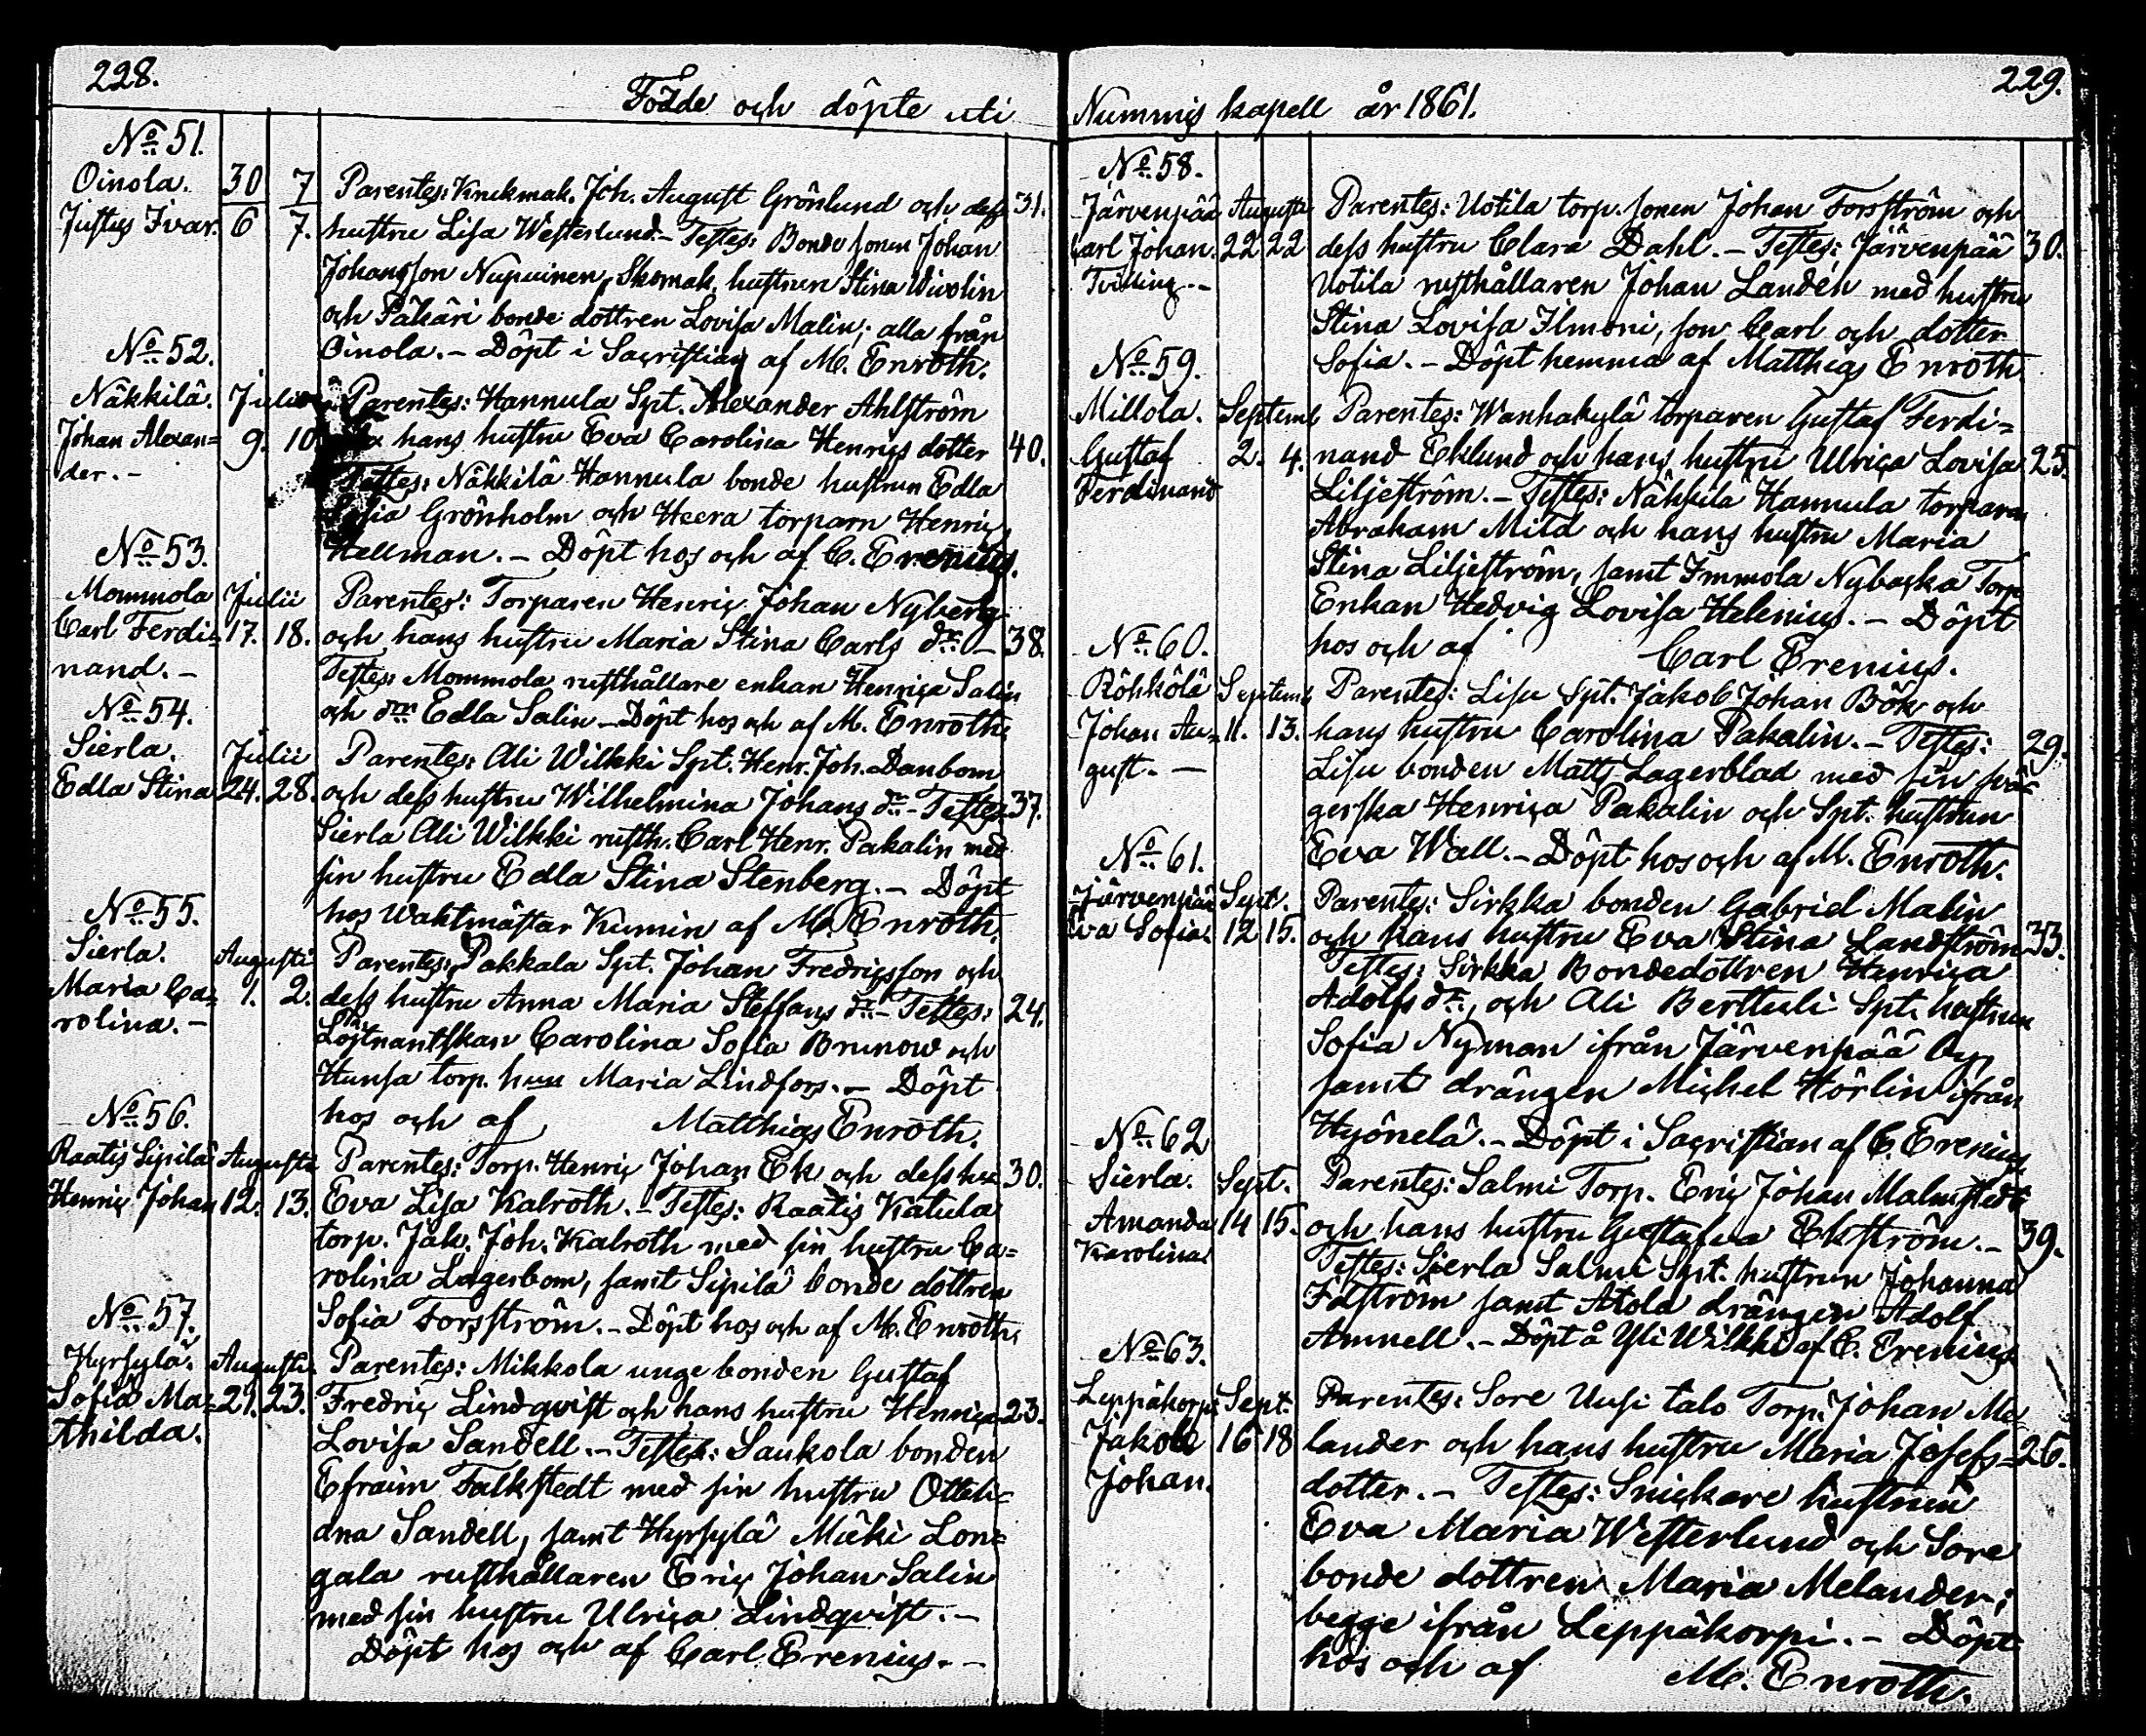 228.
Födde och döpte uti
No 51.
Oinola. 30 7 Parentes: Knekmak. Joh. August Grönlund och dess 31.
Justus Ivar. 6 7. hustru Lisa Westerlund. - Testes: Bonde sonen Johan
Johansson Nupuinen, Skomak. hustrun Stina Wivolin
och Päkäri bonde dottren Lovisa Malin; alla från
Oinola. - Döpt i Sacristian af M. Enroth.
No 52.
Näkkilä. Julii Parentes: Hannula Spt. Alexander Ahlström
Johan Alexan= 9. 10 hans hustru Eva Carolina Henrics dotter 40.
der. - Testes: Näkkilä Hannula bonde hustrun Edla
Sofia Grönholm och Heera torparn Henric
Hellman. - Döpt hos och af C. Erenius.
No 53.
Mommola Julii Parentes: Torparen Henric Johan Nyberg
Carl Ferdi= 17. 18. och hans hustru Maria Stina Carls dr. - 38.
nand. - Testes: Mommola rusthållare enkan Henrica Salin
och dr Edla Salin - Döpt hos och af M. Enroth.
No 54.
Sierla. Julii Parentes: Ali Wilkki Spt. Henr. Joh. Danbom
Edla Stina 24. 28. och dess hustru Wilhelmina Johans dr. - Testes 37.
Sierla Ali Wilkki rusth. Carl Henr. Pakalin med
sin hustru Edla Stina Stenberg. - Döpt
hos Waktmästar Kumin af M. Enroth.
No 55.
Sierla. Augusti Parentes: Pakkala Spt. Johan Fredricsson och
Maria Ca= 1. 2. dess hustru Anna Maria Steffans dr. - Testes: 24.
rolina. - Löjtnantskan Carolina Sofia Brunow och
Hunsa torp. hun Maria Lindfors. - Döpt
hos och af Matthias Enroth.
No 56.
Raatis Sipilä Augusti Parentes: Torp. Henric Johan Ek och dess hu 30.
Henric Johan 12. 13. Eva Lisa Kalroth. - Testes: Raatis Katula
torp. Jak. Joh. Kalroth med sin hustru Ca=
rolina Lagerbom, samt Sipilä bonde dottren
Sofia Forsström. - Döpt hos och af M. Enroth.
No 57.
Hyrsylä. Augusti. Parentes: Mikkola unge bonden Gustaf
Sofia Ma= 21. 23. Fredric Lindqvist och hans hustru Henrica 23.
thilda. Lovisa Sandell. - Testes: Saukola bonden
Efraim Falkstedt med sin hustru Ottili=
ana Sandell, samt Hyrsylä Mäki Lon=
gala rusthållaren Eric Johan Salin
med sin hustru Ulrica Lindqvist. -
Döpt hos och af Carl Erenius. -
229.
Nummis kapell år 1861.
No 58.
Järvenpää Augusti Parentes: Uotila torp. sonen Johan Forsström och
Carl Johan. 22 22 dess hustru Clara Dahl. - Testes: Järvenpää 30.
Tvilling. - Uotila rusthållaren Johan Landén med hustru
Stina Lovisa Ilmoni, son Carl och dotter
Sofia. - Döpt hemma af Matthias Enroth.
No 59.
Millola. Septemb Parentes: Wanhakylä torparen Gustaf Ferdi=
Gustaf 2. 4. nand Eklund och hans hustru Ulrica Lovisa 25.
Ferdinand Liljeström. - Testes: Näkkilä Hannula torparen
Abraham Mild och hans hustru Maria
Stina Liljeström, samt Immola Nybacka Torp
Enkan Hedvig Lovisa Helenius. - Döpt
hos och af Carl Erenius.
No 60.
Röhkölä Septemb Parentes: Lisu Spt. Jakob Johan Bök och
Johan Au= 11. 13. hans hustru Carolina Pakalin. - Testes: 29.
gust. - Lisu bonden Matts Lagerblad med sin svä=
gerska Henrica Pakalin och Spt. hustrun
Eva Wall. - Döpt hos och af M. Enroth.
No 61.
Järvenpää Sept. Parentes: Sirkka bonden Gabriel Malin
Eva Sofia. 12 15. och hans hustru Eva Stina Landström 33.
Testes: Sirkka Bondedottren Henrica
Adolfs dr., och Ali Berttuli Spt. hustrun
Sofia Nyman ifrån Järvenpää by,
samt drängen Michel Hörlin ifrån
Hyönelä. - Döpt i Sacristian af C. Erenius
No 62
Sierla. Sept. Parentes: Salmi Torp. Eric Johan Malmstedt
Amanda 14 15. och hans hustru Gustafva Ekström. - 39.
Karolina Testes: Sierla Salmi Spt. hustrun Johanna
Fäström samt Atola drängen Adolf
Amnell. - Döpt å Yli Wilkki af C. Erenius
No 63.
Leppäkorpi Sept. Parentes: Sore Uusi talo Torp. Johan Me=
Jakob 16 18 lander och hans hustru Maria Josefs= 26.
Johan. dotter. - Testes: Snickare hustrun
Eva Maria Westerlund och Sore
bonde dottren Maria Melander;
begge ifrån Leppäkorpi. - Döpt
hos och af M. Enroth.